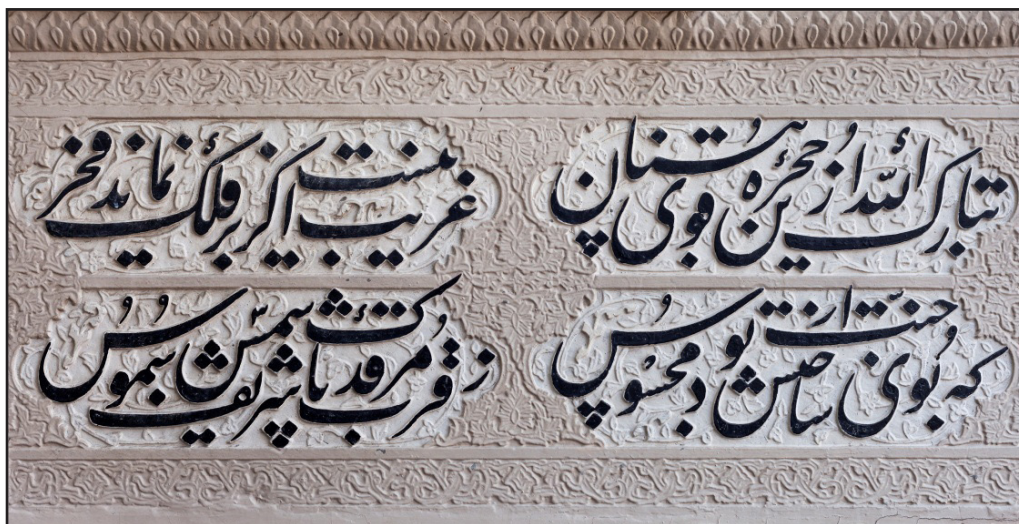 تبارک اللّه ازین حجرهٔ
غریب نیست اگر بر فلک نماید فخر
که بوی جنّت از ساحتش بود محسوس
ز قرب مرقد شریف شمس شموس